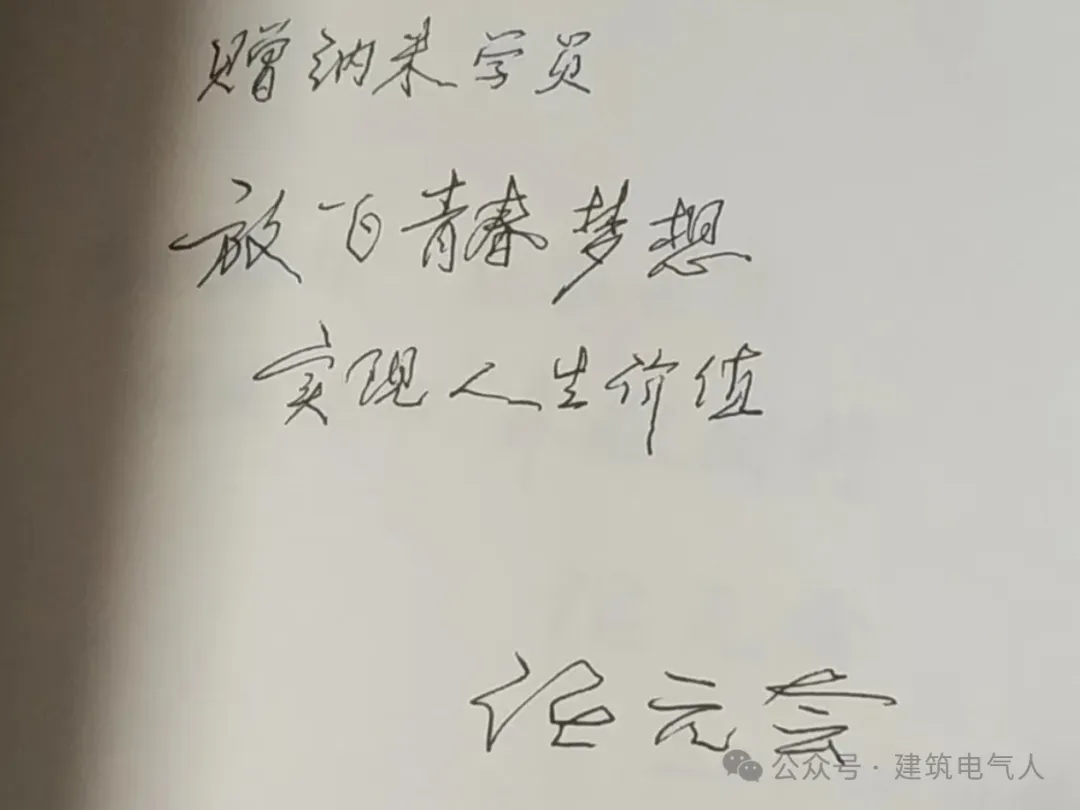 赠纳米学员
放飞青春梦想
实现人生价值
任元会
公众号·建筑电气人